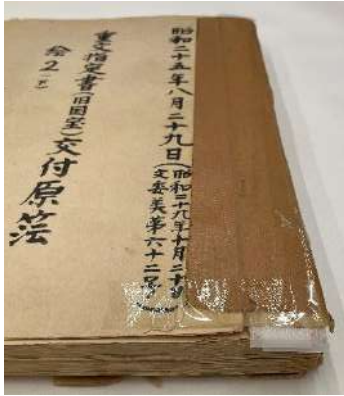 昭和二十五年八月二十九日(昭和二十九年十月二十日
文委美第六十二号)
重文指定書(旧国宝)交付原簿
絵2